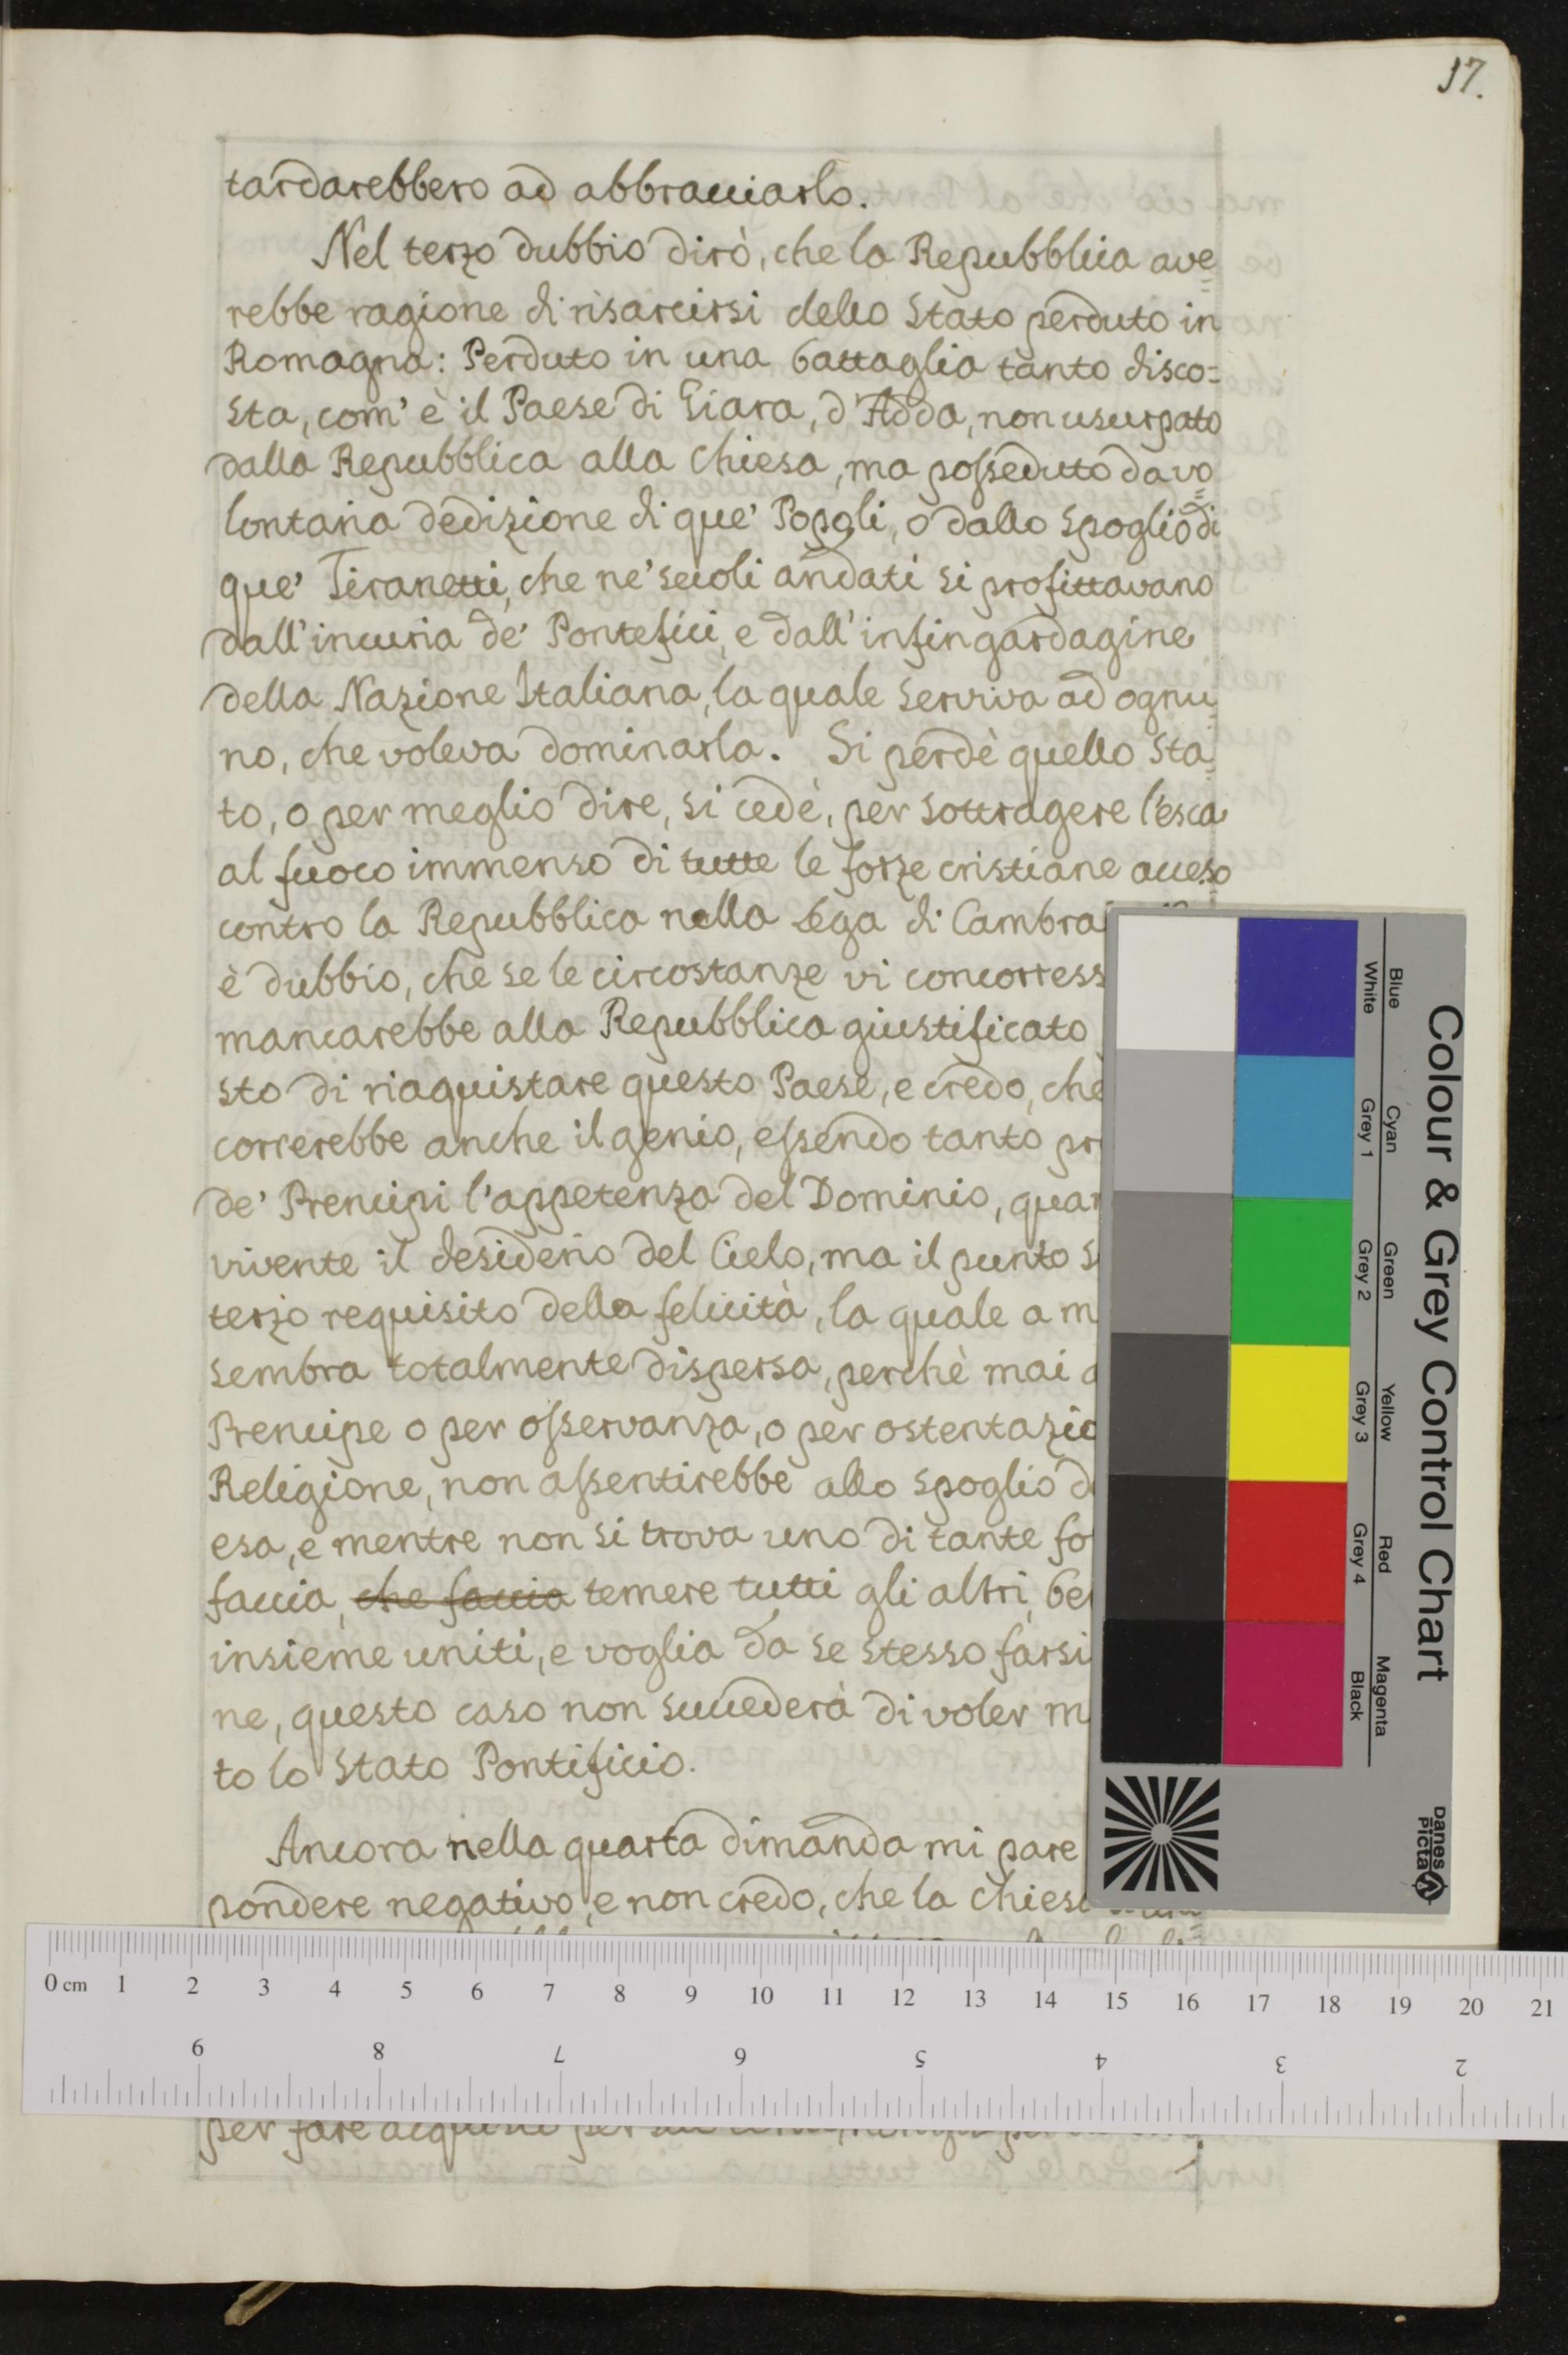 17.
tardarebbero ad abbracciarlo.
Nel terzo dubbio dirò, che la Repubblica ave=
rebbe ragione di risarcirsi dello Stato perduto in
Romagna: Perduto in una battaglia tanto disco=
sta, com' è il Paese di Giara, d'Adda, non usurpato
dalla Repubblica alla Chiesa, ma posseduto da vo=
lontaria dedizione di que' Popoli, o dallo Spoglio di
que' Tiranetti, che ne' secoli andati si profittavano
dall'incuria de' Pontefici, e dall'infingardagine
della Nazione Italiana, la quale serviva ad ognu=
no, che voleva dominarla. Si perdè quello Sta=
to, o per meglio dire, si cedè, per sottragere l'esca
al fuoco immenso di tutte le forze cristiane acceso
contro la Repubblica nella Lega di Cambra
è dubbio, che se le circostanze vi concorress
mancarebbe alla Repubblica giustificato
sto di riaquistare questo Paese, e credo, che
correrebbe anche il genio, essendo tanto pr
de' Prencipi l'appetenza del Dominio, quan
vivente il desiderio del Cielo, ma il punto s
terzo requisito della felicità, la quale a m
sembra totalmente dispersa, perchè mai a
Prencipe o per osservanza, o per ostentazio
Religione, non assentirebbe allo spoglio d
esa, e mentre non si trova uno di tante fo
faccia, che faccia temere tutti gli altri, be
insieme uniti, e voglia da se stesso farsi
ne, questo caso non succederà di voler m
to lo Stato Pontificio.
Ancora nella quarta dimanda mi pare
pondere negativo, e non credo, che la Chiesa
per fare acquisti per
Colour & Grey Control Chart
Blue Cyan Green Yellow Red Magenta
White Grey 1 Grey 2 Grey 3 Grey 4 Black
Danes Picta
0 cm 1 2 3 4 5 6 7 8 9 10 11 12 13 14 15 16 17 18 19 20 21
9 8 7 6 5 4 3 2